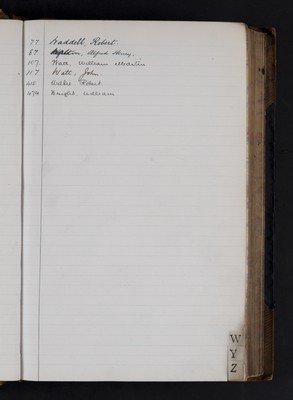 77 Waddell, Robert.
87 Alfred Henry.
107. Watt, William
117 Watt, John.
Robert.
474 Wright, William
W
Y
Z